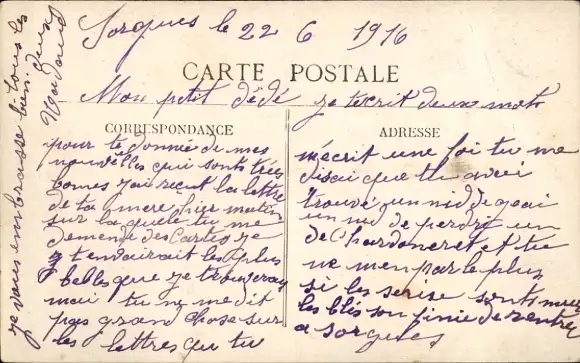 Sorgues le 22 6 1916
CARTE POSTALE
Mon petit dédé je tecrit deux mots
CORRESPONDANCE
pour te donnée de mes
nouvelles qui sont tres
bonnes jai recut la lettre
de ta mere hier matin
sur la quelle tu me
demende des Cartes je
t envairait les plus
belles que je trouverai
mai tu ne me dit
pas gran chose sur
les lettres que tu
ADRESSE
mécrit une foi tu me
disai que tu avai
trouvé un nid de geai
un nid de perdri un
de Chardoneret et tu
ne men parle plus
si les serise sont mur
les blés son finie de rentrer
a Sorgues
je vous embrasse bien tous les
deux